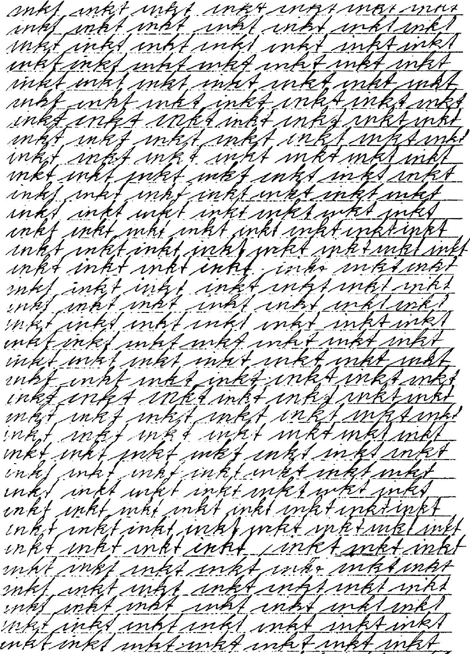 inkt inkt inkt inkt inkt inkt inkt
inkt inkt inkt inkt inkt inkt inkt
inkt inkt inkt inkt inkt inkt inkt
inkt inkt inkt inkt inkt inkt inkt
inkt inkt inkt inkt inkt inkt inkt
inkt inkt inkt inkt inkt inkt inkt
inkt inkt inkt inkt inkt inkt inkt
inkt inkt inkt inkt inkt inkt inkt
inkt inkt inkt inkt inkt inkt inkt
inkt inkt inkt inkt inkt inkt inkt
inkt inkt inkt inkt inkt inkt inkt
inkt inkt inkt inkt inkt inkt inkt
inkt inkt inkt inkt inkt inkt inkt inkt
inkt inkt inkt inkt inkt inkt inkt inkt
inkt inkt inkt inkt inkt inkt inkt
inkt inkt inkt inkt inkt inkt inkt
inkt inkt inkt inkt inkt inkt inkt
inkt inkt inkt inkt inkt inkt inkt
inkt inkt inkt inkt inkt inkt inkt
inkt inkt inkt inkt inkt inkt inkt
inkt inkt inkt inkt inkt inkt inkt
inkt inkt inkt inkt inkt inkt inkt
inkt inkt inkt inkt inkt inkt inkt
inkt inkt inkt inkt inkt inkt inkt
inkt inkt inkt inkt inkt inkt inkt
inkt inkt inkt inkt inkt inkt inkt
inkt inkt inkt inkt inkt inkt inkt
inkt inkt inkt inkt inkt inkt inkt inkt
inkt inkt inkt inkt inkt inkt inkt inkt
inkt inkt inkt inkt inkt inkt inkt
inkt inkt inkt inkt inkt inkt inkt
inkt inkt inkt inkt inkt inkt inkt
inkt inkt inkt inkt inkt inkt inkt
inkt inkt inkt inkt inkt inkt inkt
inkt inkt inkt inkt inkt inkt inkt